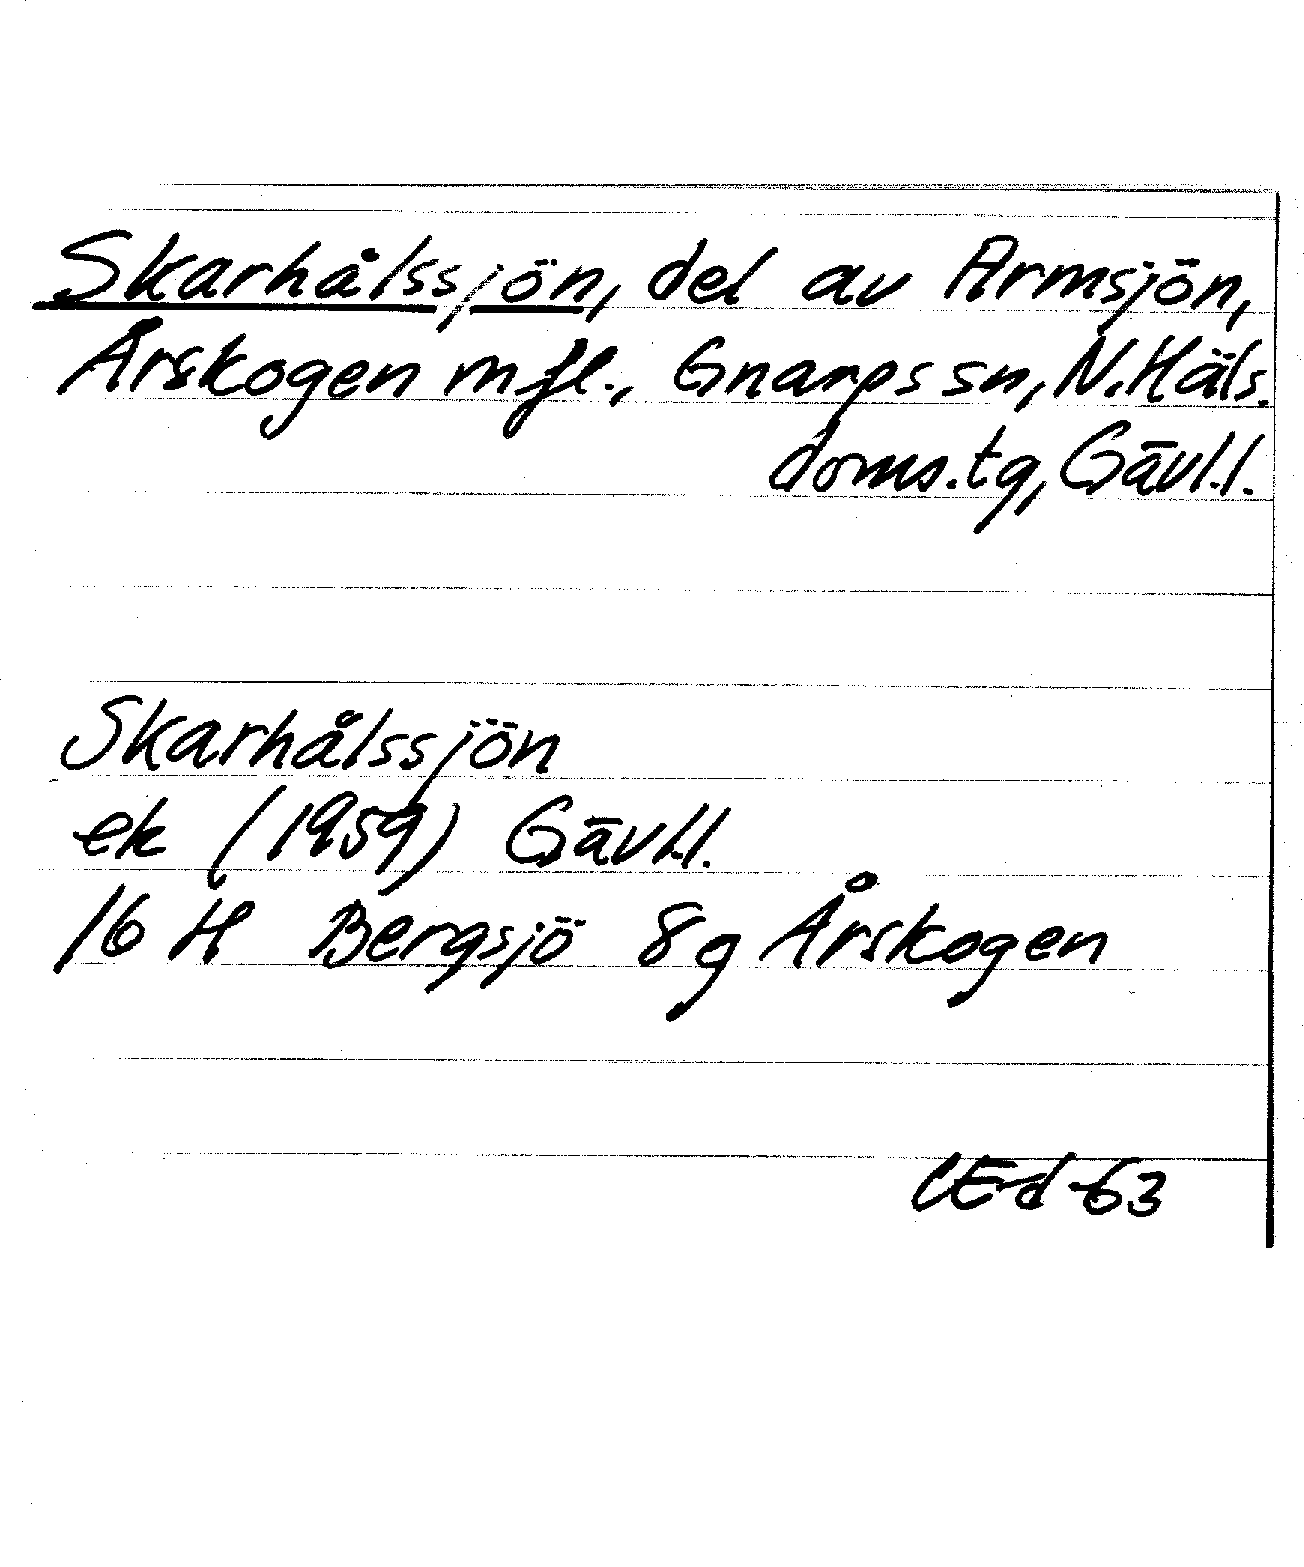 Skarhålssjön, del av Armsjön,
Årskogen m fl., Gnarps sn, N. Häls.
doms.tg, Gävl.l.
Skarhålssjön
ek (1959) Gävl.l.
16 H Bergsjö 8g Årskogen
CEd -63